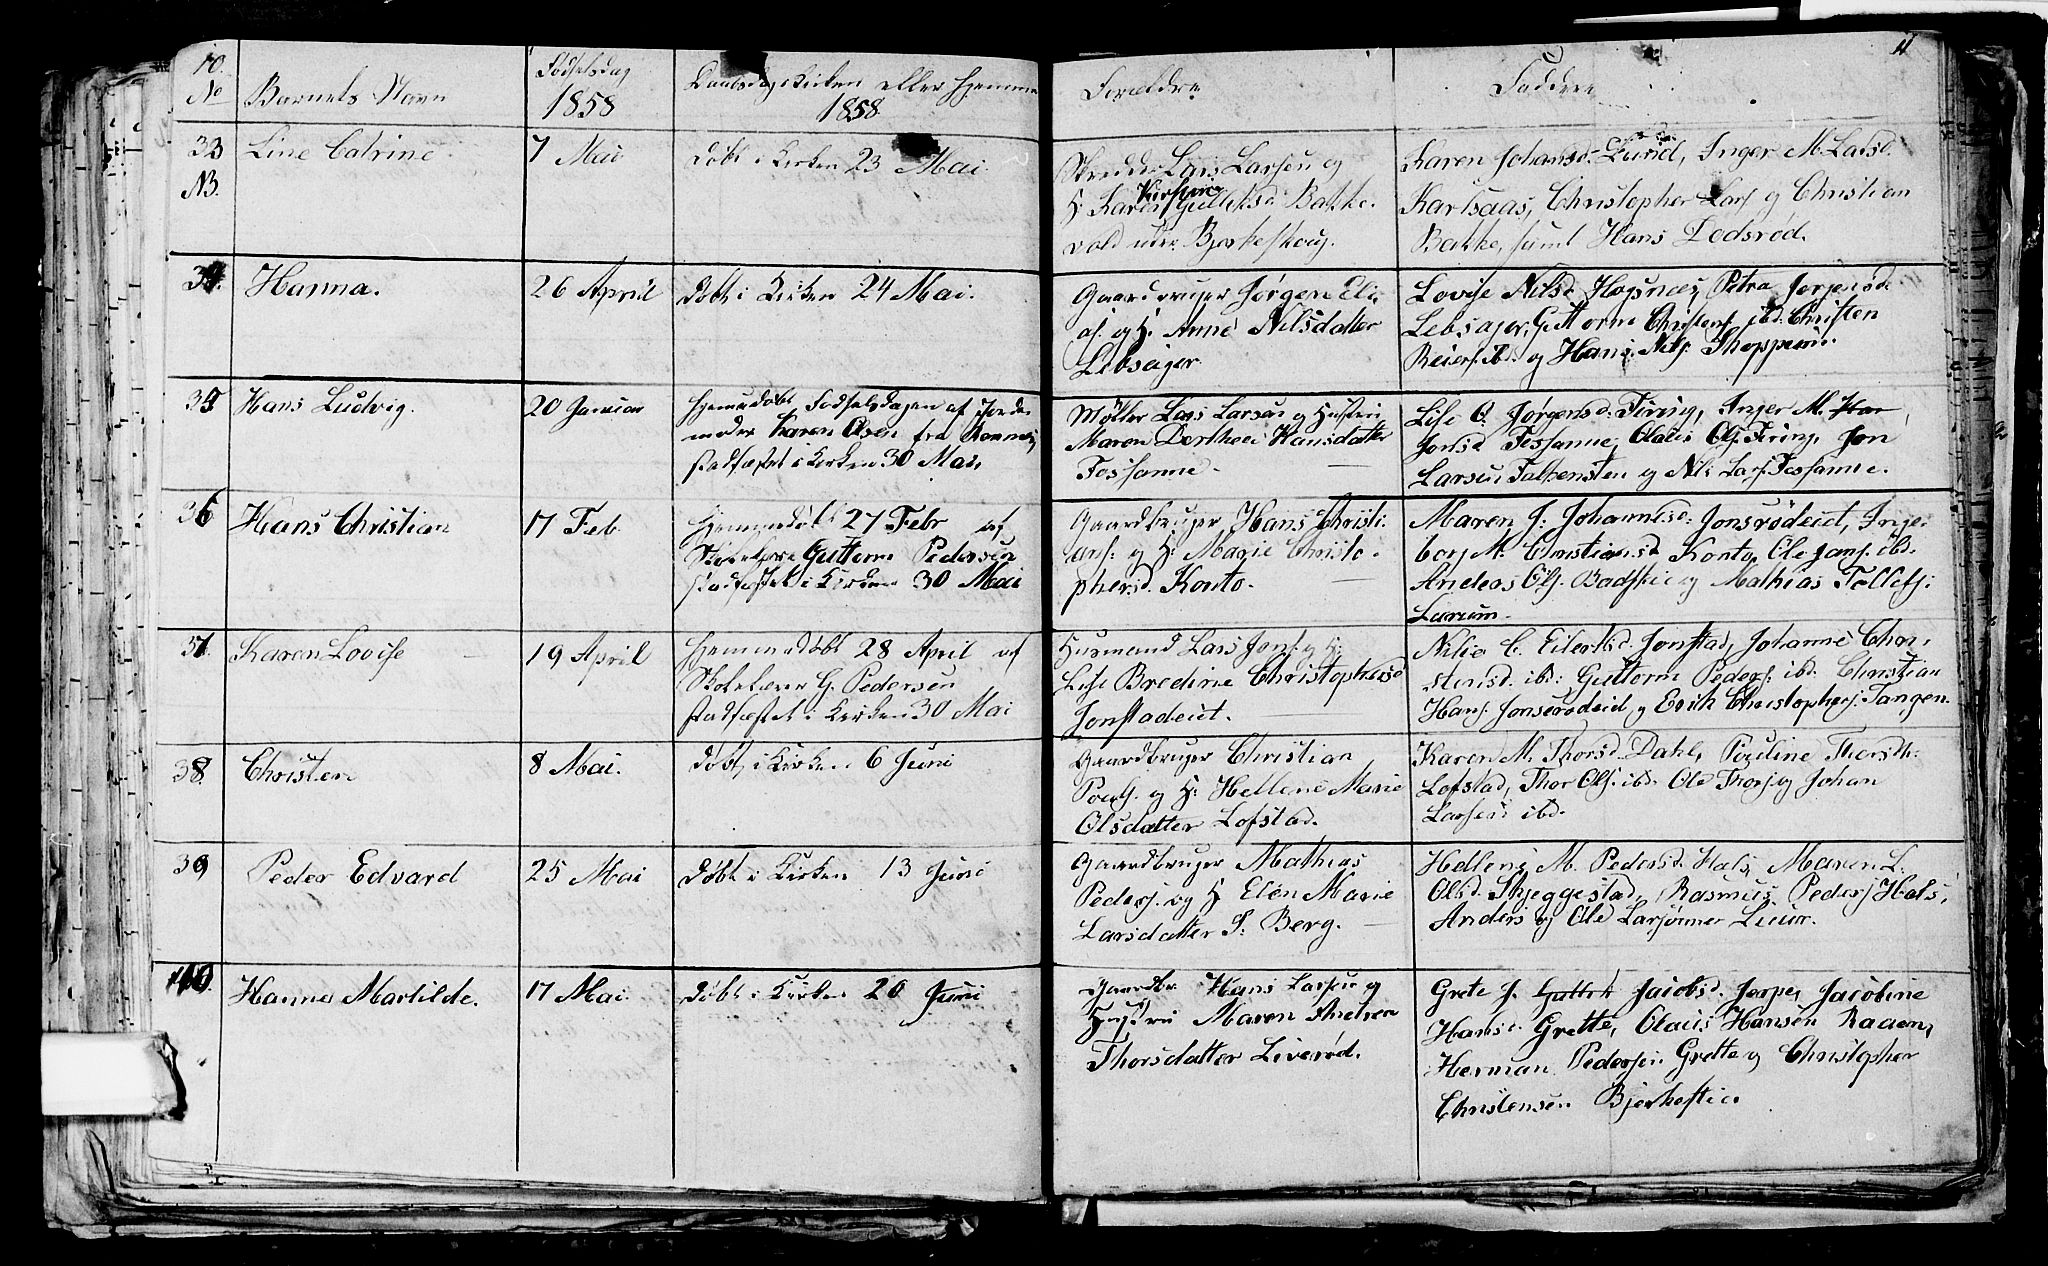 10.
No
Barnets Navn
Fødselsdag
1858
Daabsdag i Kirken eller hjemme
1858
Forældre
Faddere
11
33
NB.
Line Catrine
7 Mai
døbt i Kirken 23 Mai.
Lars Larsen og
H: Karen Kirstine Gulliksd. Bakke-
vold under Bjerkeskoug.
Karen Johansd. Inger M. Larsd.
Kartsaas, Christopher Lars. og Christian
Bakke, samt Hans Dedsrød.
34.
Hanna.
26 April
døbt i Kirken 24 Mai.
Gaardbruger Jørgen Eli-
as. og H. Anne Nilsdatter
Lebsajer
Lovise Nilsd. Hogsnes, Petra Jørgensd.
Lebsajer, Guttorm Christens. ibd: Christen
Reiers. ibd. og Hans Nils. Thoppum.
35
Hans Ludvig.
20 Januar
hjemmedøbt Fødselsdagen af Jorde-
moder Karen Osen fra
stadfæstet i Kirken 30 Mai,
Møller Lars Larsen og Hustru
Maren Dorthea Hansdatter
Fossanne.
Lise O. Jørgensd. Firing, Inger M.
Jonsd. Fossanne, Olaus Ols. Firing, Jon
Larsen Falkensten og Nils Lars. Fossanne.
36
Hans Christian
17 Feb.
hjemmedøbt 27 Febr af
Skolelærer Guttorm Pedersen
stadfæstet i Kirken 30 Mai
Gaardbruger Hans Christi-
ans: og H: Marie Christo-
phersd. Konto.
Maren J: Johannesd: Jonsrødeiet, Inge-
borg M. Christiansd Konto, Ole Jans. ibd.
Andeas Ols. Badskie og Mathias Tollefs:
Lurum.
37.
Karen Lovise
19 April
Hjemmedøbt 28 April af
Skolelærer G. Pedersen
stadfæstet i Kirken 30 Mai
Husmand Lars Jons. og H:
Lise Bredine Christophersd
Jonstadeiet.
Nilie C. Eilertsd. Jonstad, Johanne Chri-
stensd. ibd: Guttorm Peders. ibd. Christian
Hans. Jonserødeid og Erik Christophers. Tangen.
38.
Christen
8 Mai.
døbt i Kirken 6 Juni
Gaardbruger Christian
Pouls. og H: Hellene Marie
Olsdatter Lofstad.
Karen M. Thorsd. Dahl, Pouline Thorsdt.
Lofstad, Thor Ols. ibd. Ole Thors. og Johan
Larsen ibd.
39
Peder Edvard
25 Mai
døbt i Kirken 13 Juni
Gaardbruger Mathias
Peders. og H Elen Marie
Larsdatter S: Berg.
Hellene M. Pedersd. Hals, Maren L.
Olsd. Skjeggestad, Rasmus Peders. Hals,
Anders og Ole Larsønner Lieur.
40.
Hanne Martilde.
17 Mai.
døbt i Kirken 20 Juni
Gaardbr. Hans Larsen og
Hustru Maren Andrea
Thorsdatter Liverød.
Grete J. Jacobsd. Jerpe, Jacobine
Hansd. Grette, Olaus Hansen Raaen,
Herman Pedersen Grette og Christopher
Christensen Bjerkestie.